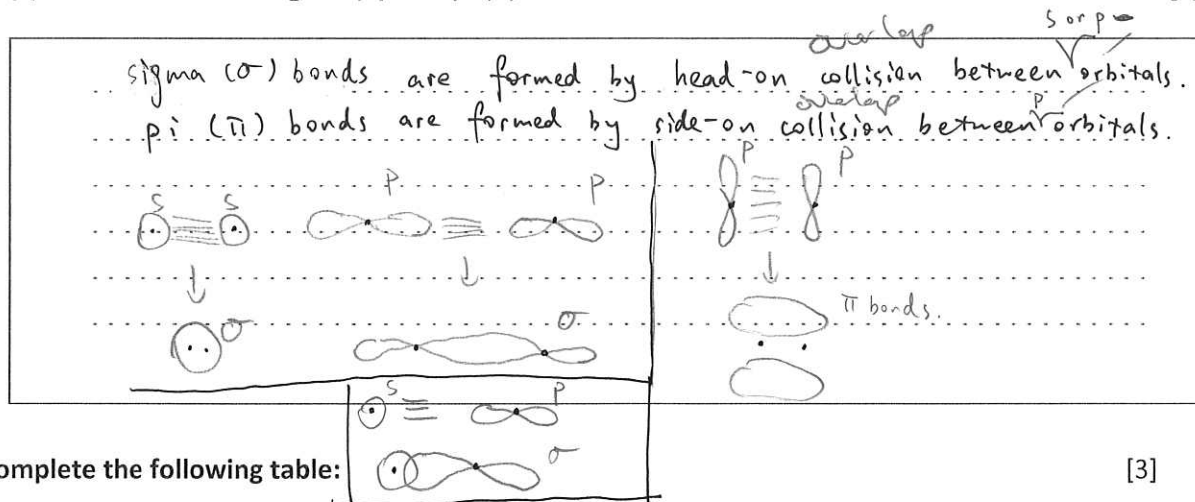 s or p
overlap
sigma (σ) bonds are formed by head-on collision between orbitals.
overlap p
pi (π) bonds are formed by side-on collision between orbitals.
s s p p p p
σ σ π bonds.
s p
omplete the following table: σ [3]